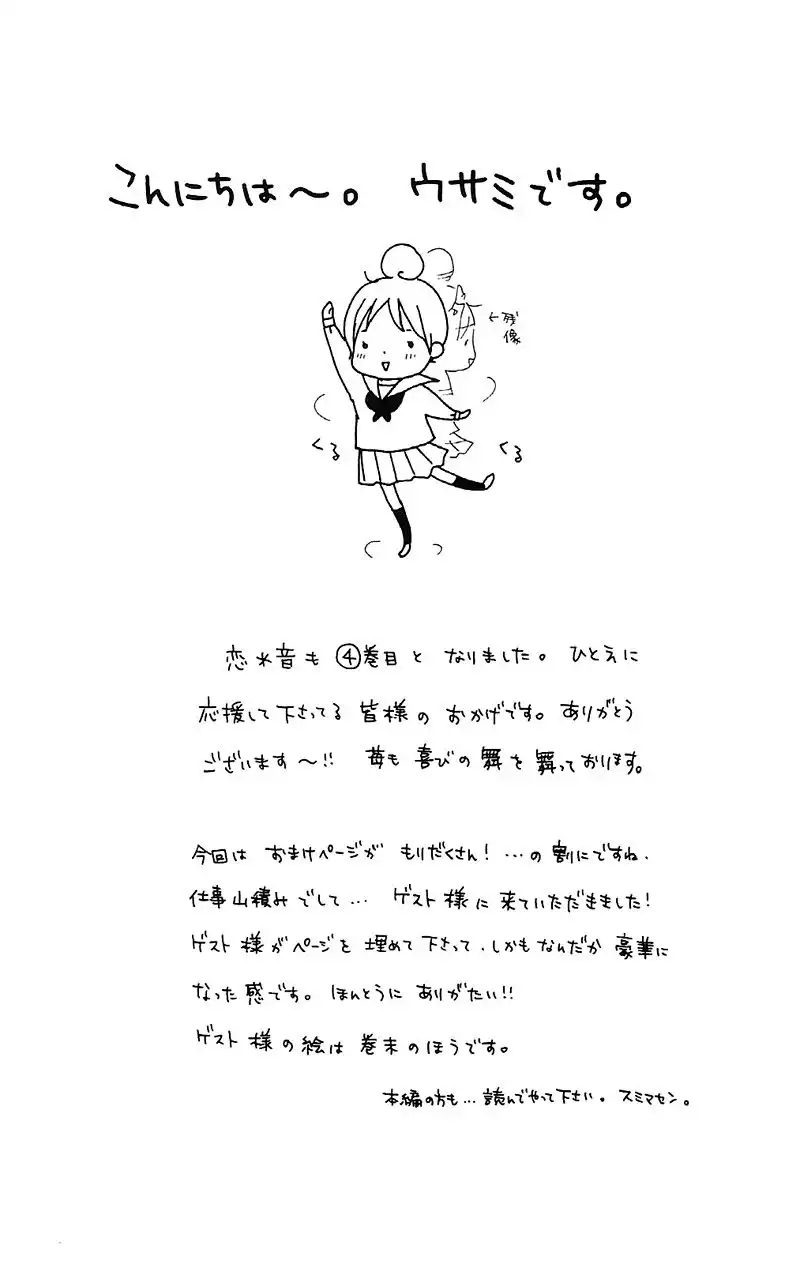 こんにちは〜。 ウサミです。
←残像
くる
くる
恋水音も④巻目と なりました。 ひとえに
応援して下さってる 皆様の おかげです。 ありがとう
ございます〜!! 苺も 喜びの 舞を 舞っております。
今回は おまけページが もりだくさん! …の 割にですね、
仕事山積みでして… ゲスト様に 来ていただきました!
ゲスト様がページを 埋めて 下さって、しかもなんだか 豪華に
なった 感です。 ほんとうに ありがたい!!
ゲスト様の絵は 巻末のほうです。
本編の方も…読んでやって下さい。 スミマセン。